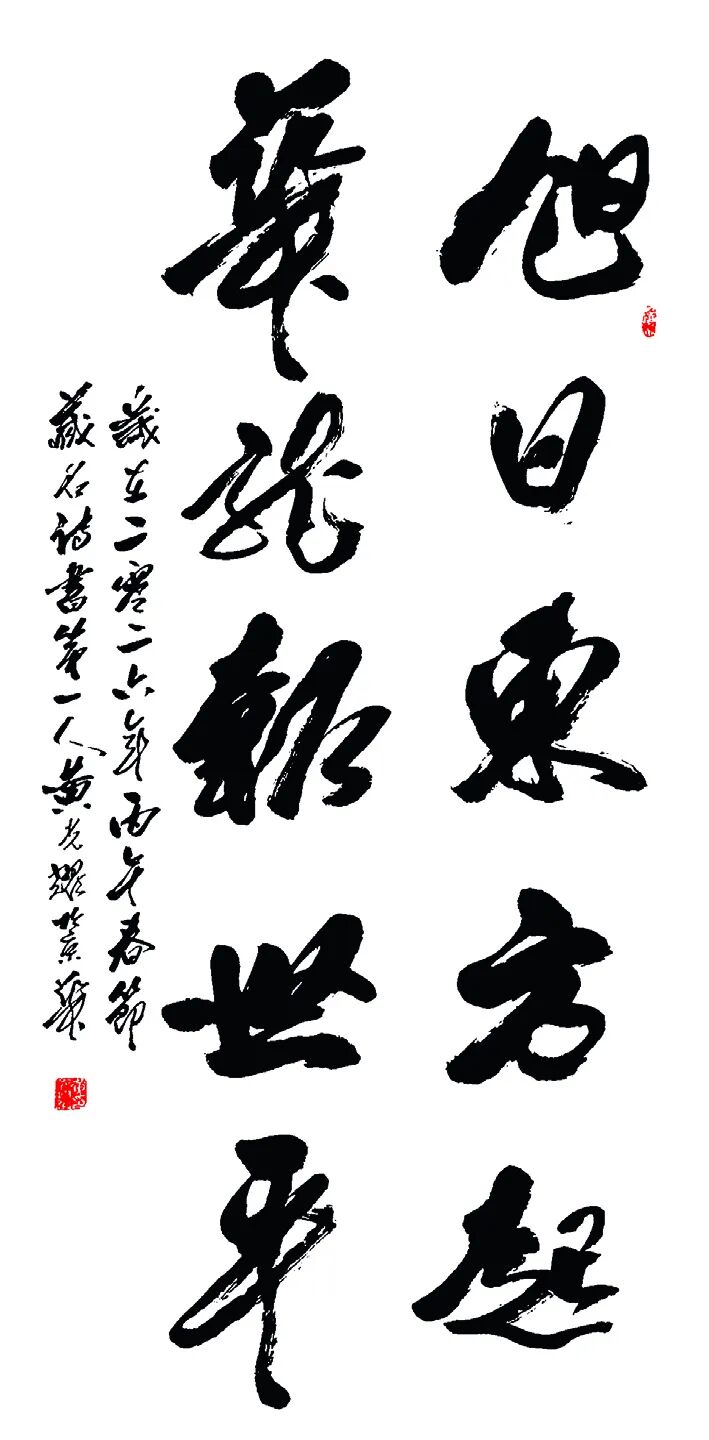 旭日東方起
華龍報世平
歲在二零二六年丙午春節
藏名詩書第一人黃光耀京華